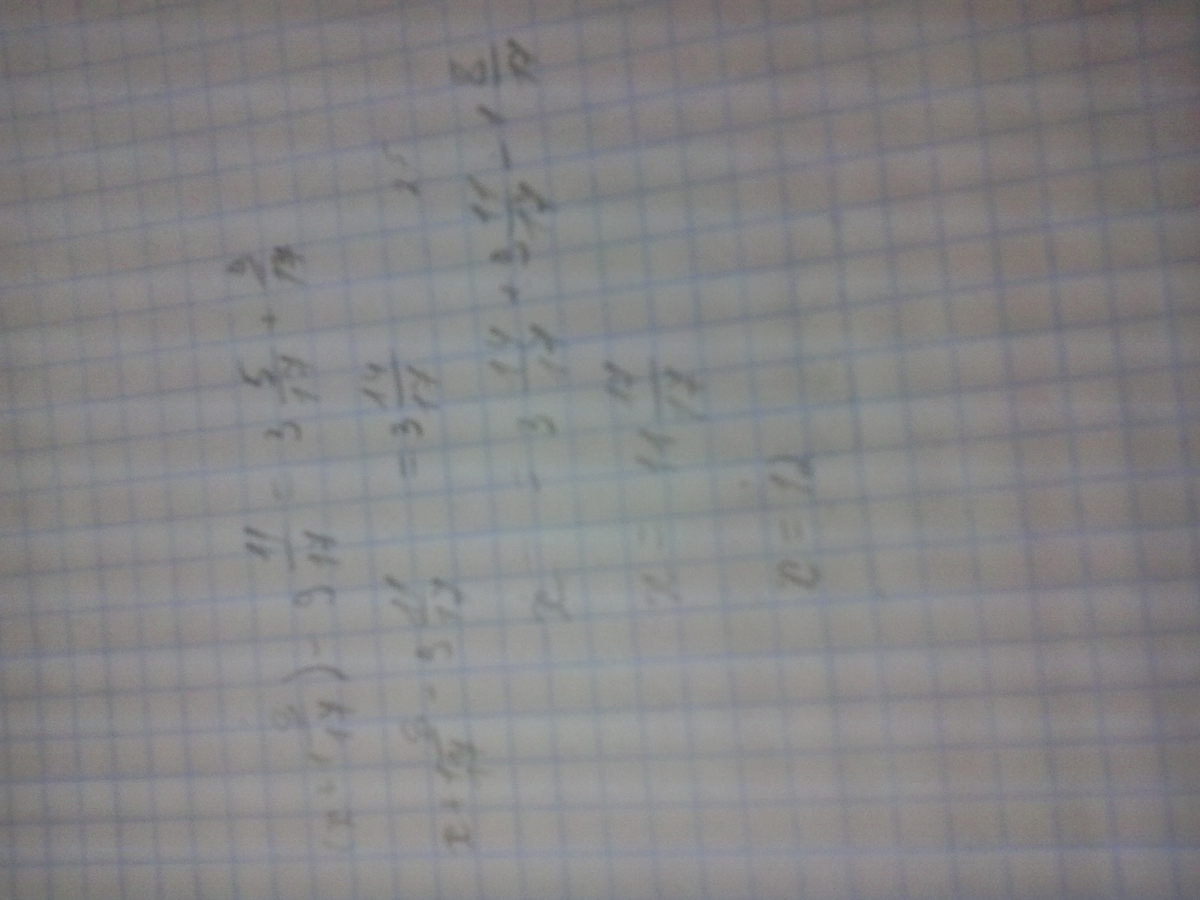 (x + 1 8/17) - 9 11/17 = 3 5/17 + 9/17
x + 1 8/17 - 9 11/17 = 3 14/17
x = 3 14/17 + 9 11/17 - 1 8/17
x = 11 17/17
x = 12